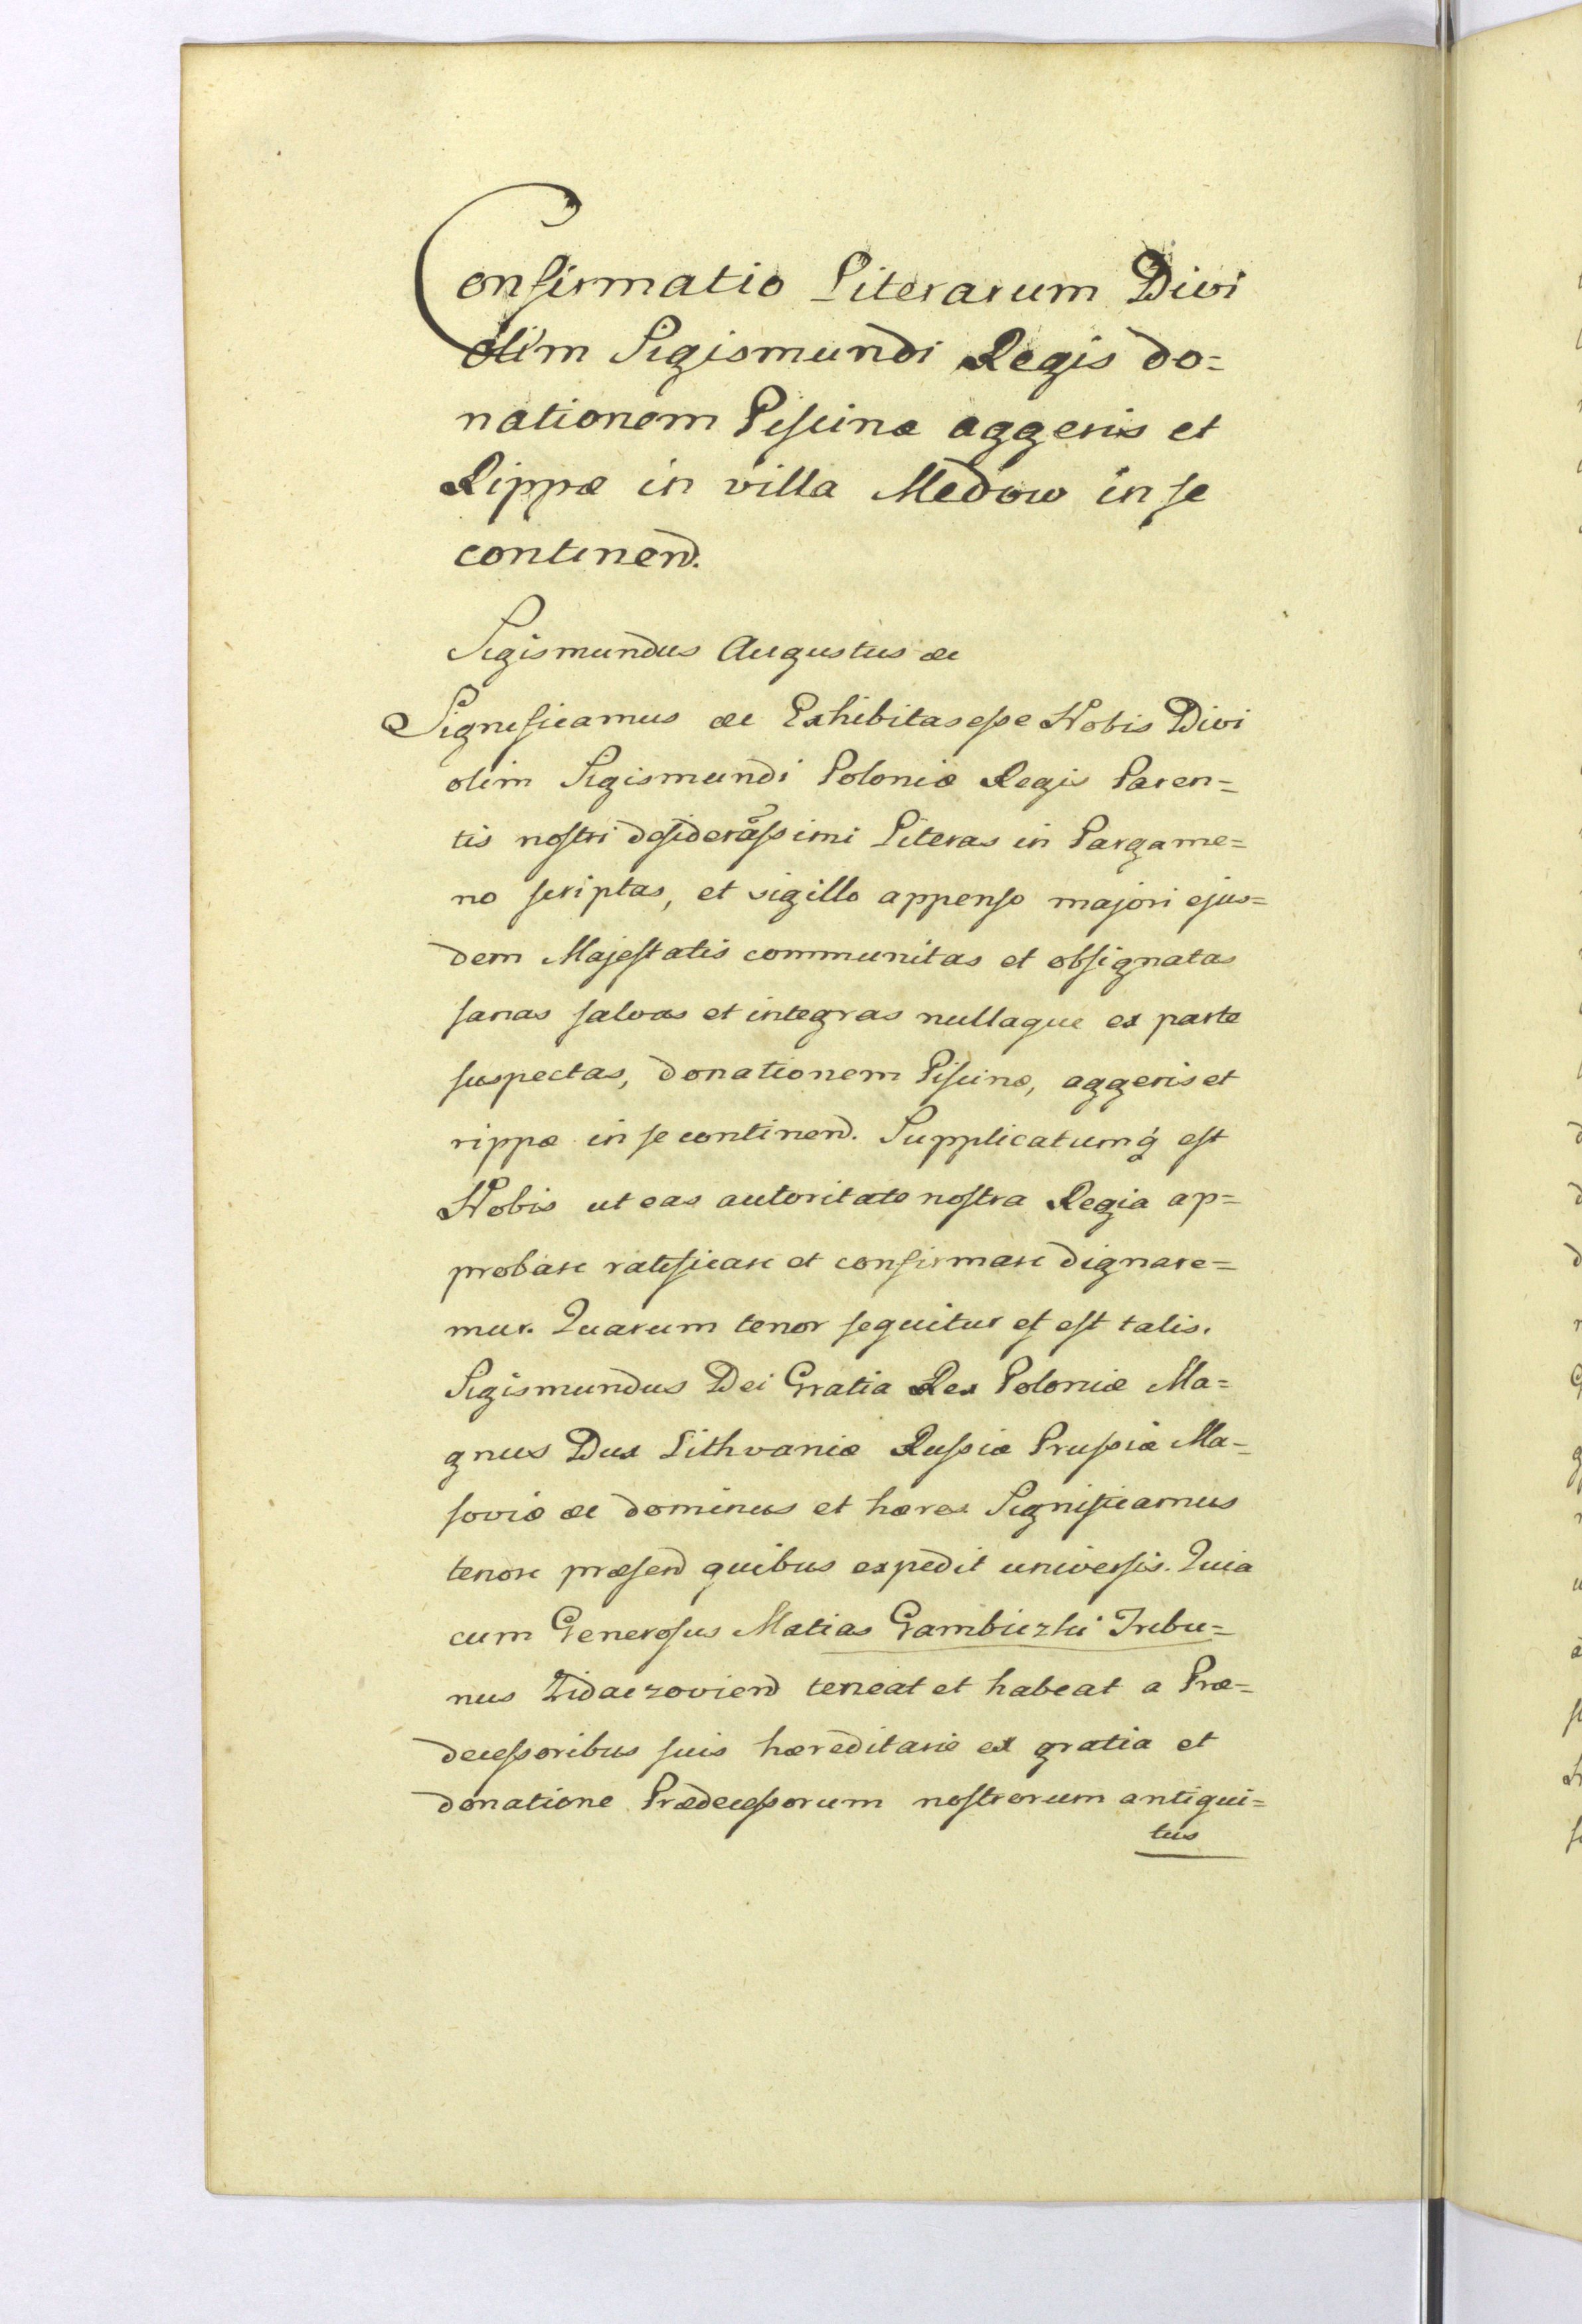 Confirmatio Literarum Divi
olim Sigismundi Regis do=
nationem Piscinæ aggeris et
Rippæ in villa Medow in se
continend.
Sigismundus Augustus &c
Significamus &c Exhibitas esse Nobis Divi
olim Sigismundi Poloniæ Regis Paren=
tis nostri desiderassimi Literas in Pargame=
no scriptas, et sigillo appenso majori ejus=
dem Majestatis communitas et obsignatas
sanas salvas et integras nullaque ex parte
suspectas, donationem Piscinæ, aggeris et
rippæ in se continend. Supplicatumq́ est
Nobis ut eas autoritate nostra Regia ap=
probare ratificare et confirmare dignare=
mur. Quarum tenor sequitur et est talis.
Sigismundus Dei Gratia Rex Poloniæ Ma=
gnus Dux Lithvaniæ Russiæ Prussiæ Ma=
soviæ &c dominus et hæres Significamus
tenore præsend quibus expedit universis. Quia
cum Generosus Matias Gambiczki Tribu=
nus Zidaczoviend teneat et habeat a Præ=
decessoribus suis hæreditarie ex gratia et
donatione Prædecessorum nostrorum antiqui=
tus